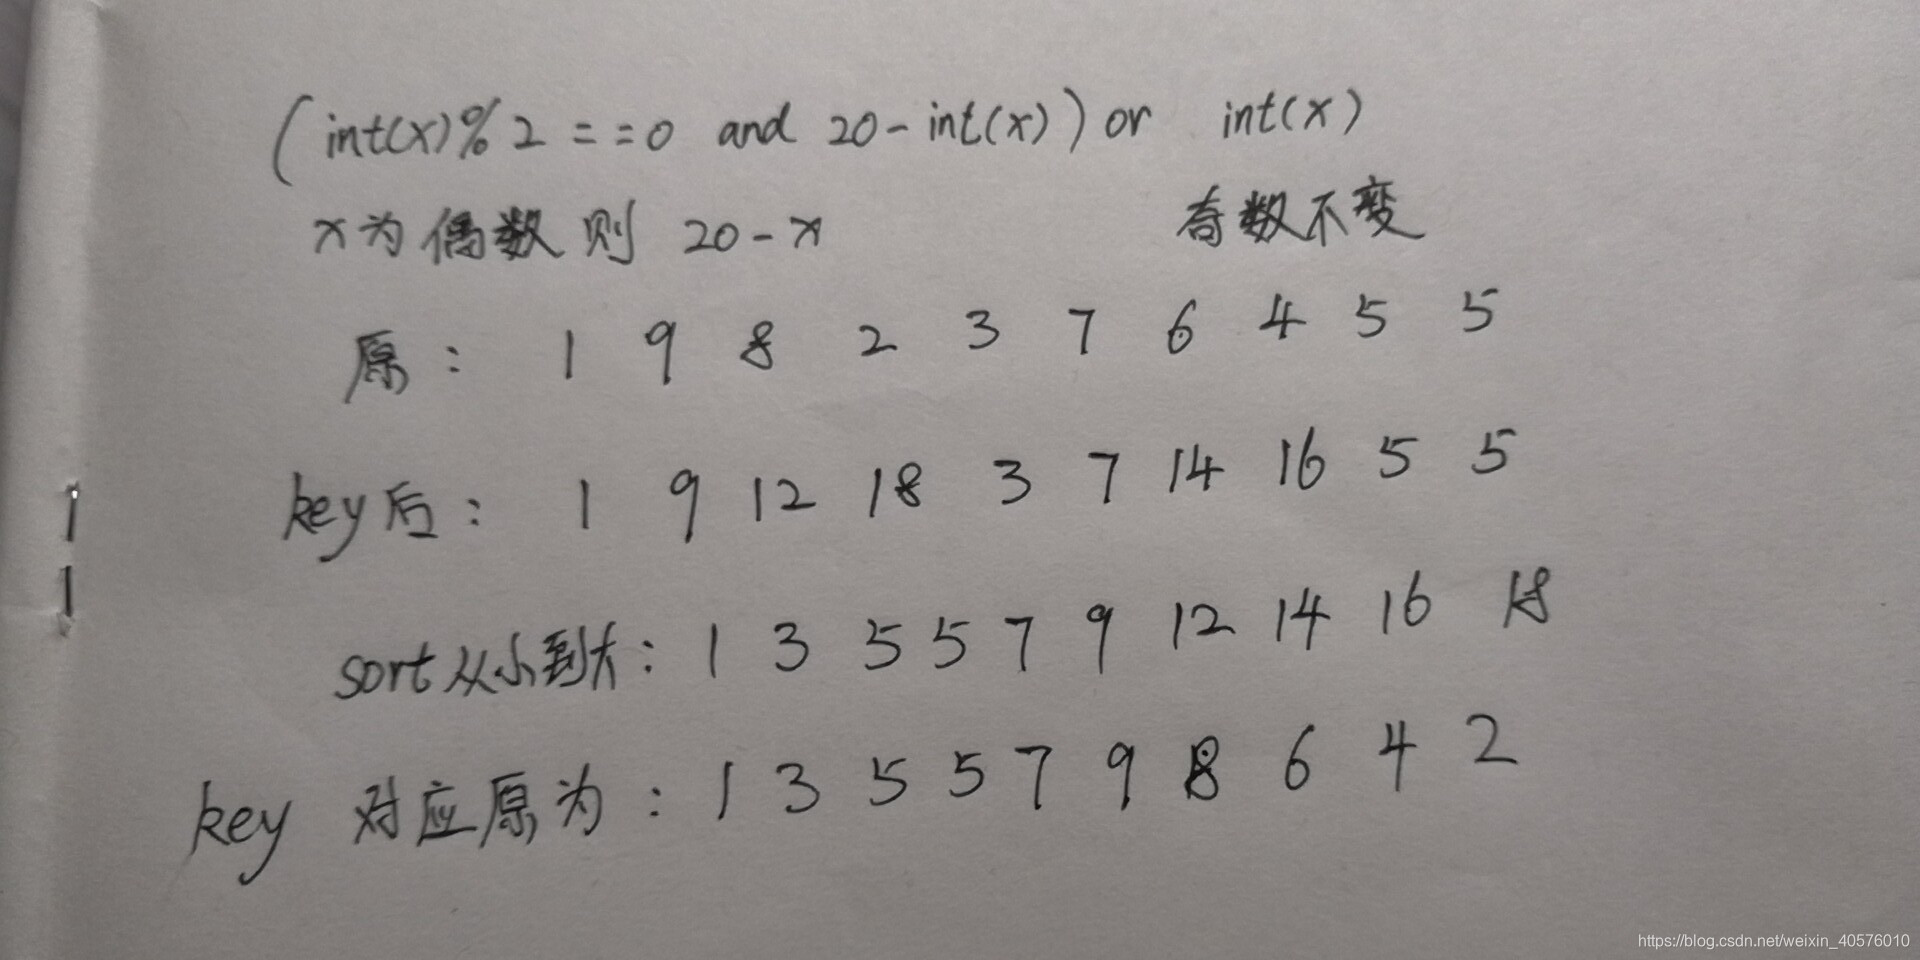 (int(x)%2==0 and 20-int(x)) or int(x)
x为偶数则 20-x 奇数不变
原: 1 9 8 2 3 7 6 4 5 5
key后: 1 9 12 18 3 7 14 16 5 5
sort从小到大: 1 3 5 5 7 9 12 14 16 18
key 对应原为: 1 3 5 5 7 9 8 6 4 2
https://blog.csdn.net/weixin_40576010